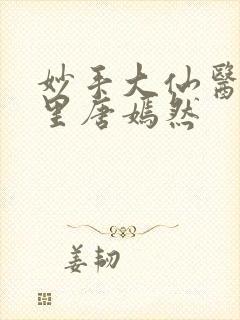 妙手大仙醫
里唐嫣然
姜韌